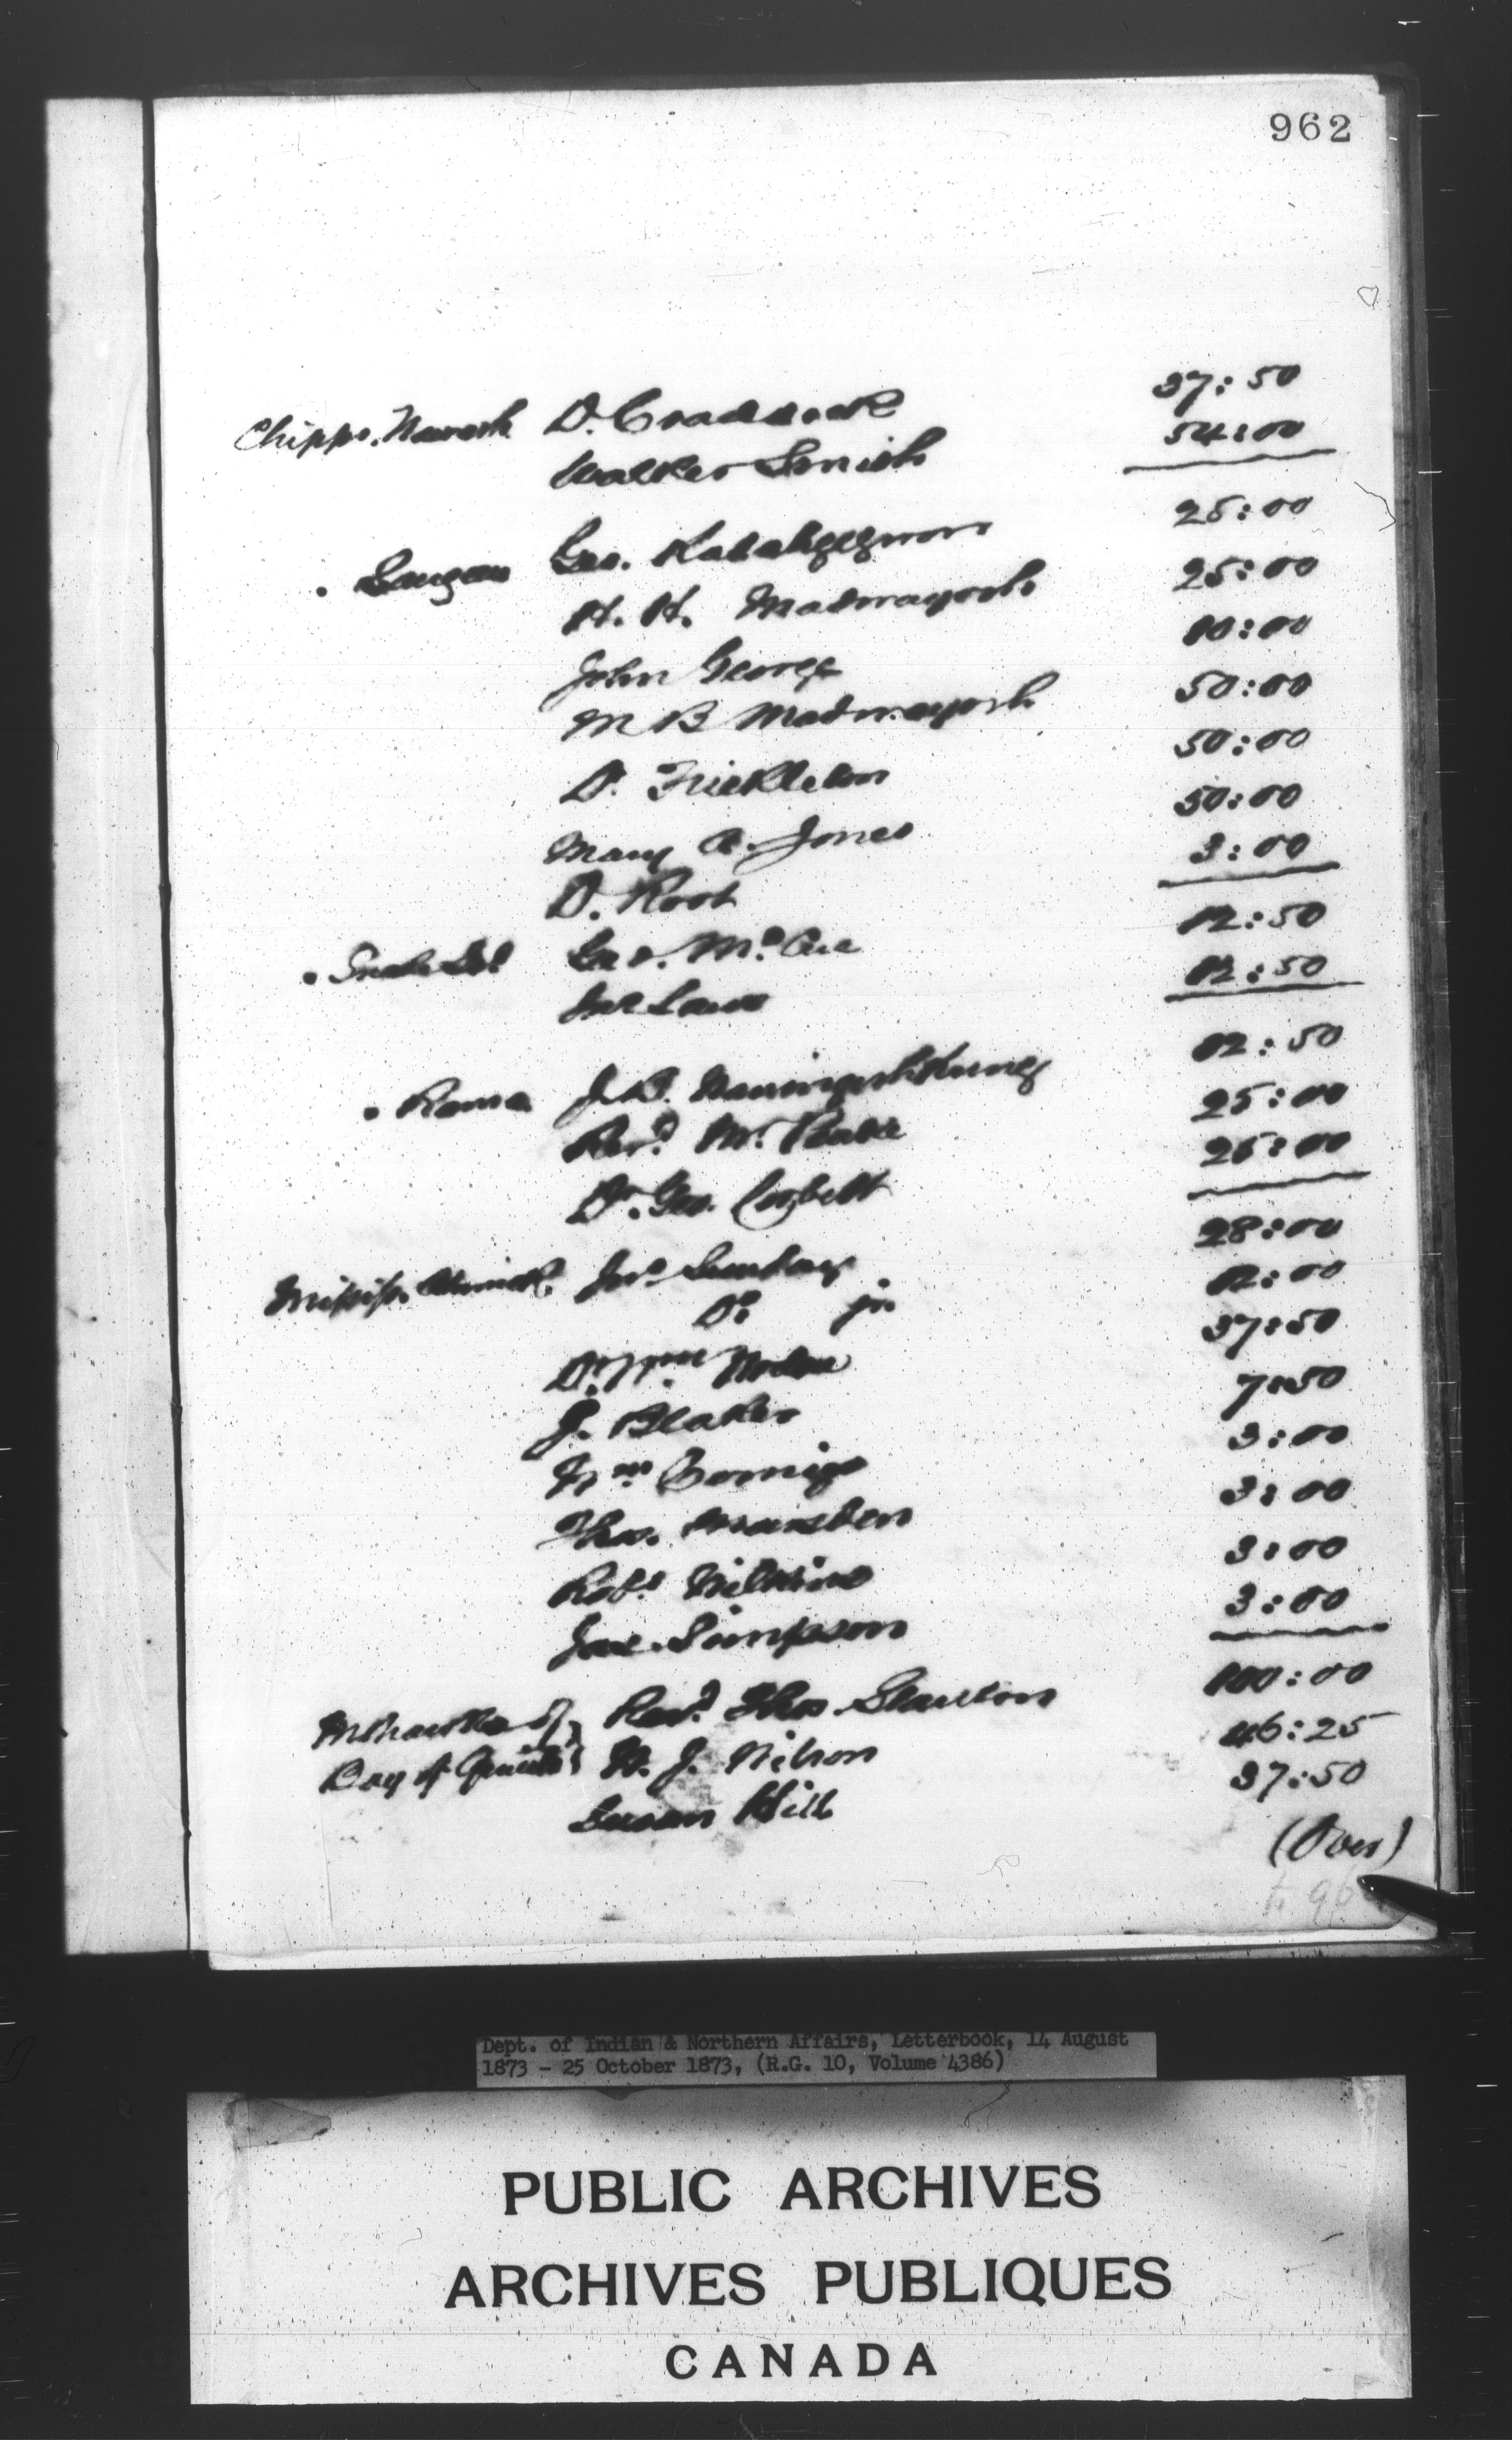 962
Chipps. Nawash D. Craddock 37:50
Walker Smith 54:00
" Saugeen Geo. Kabahgegwon 25:00
H. H. Madwayosh 25:00
John George 10:00
M B Madwayosh 50:00
D. Frickleton 50:00
Mary A. Jones 50:00
D. Root 3:00
" Snake Isld Geo. McCue 12:50
Jas Laws 12:50
" Rama J. B. Naningishkung 12:50
Revd Mr. 25:00
Dr. Geo. Corbett 25:00
Mississ. Alnwick. Jno Sunday 28:00
Do jr. 12:00
Dr. Wm 37:50
J. Blaker 7:50
Wm Comego 3:00
Thos. Marsden 3:00
Robt Wilkins 3:00
Jas. Simpson 3:00
Mohawks of Revd. Thos. Stanton 100:00
Bay of Quinté W. J. Wilson 46:25
Susan Hill 37:50
(Over)
Dept. of Indian & Northern Affairs, Letterbook, 14 August
1873 - 25 October 1873, (R.G. 10, Volume 4386)
PUBLIC ARCHIVES
ARCHIVES PUBLIQUES
CANADA